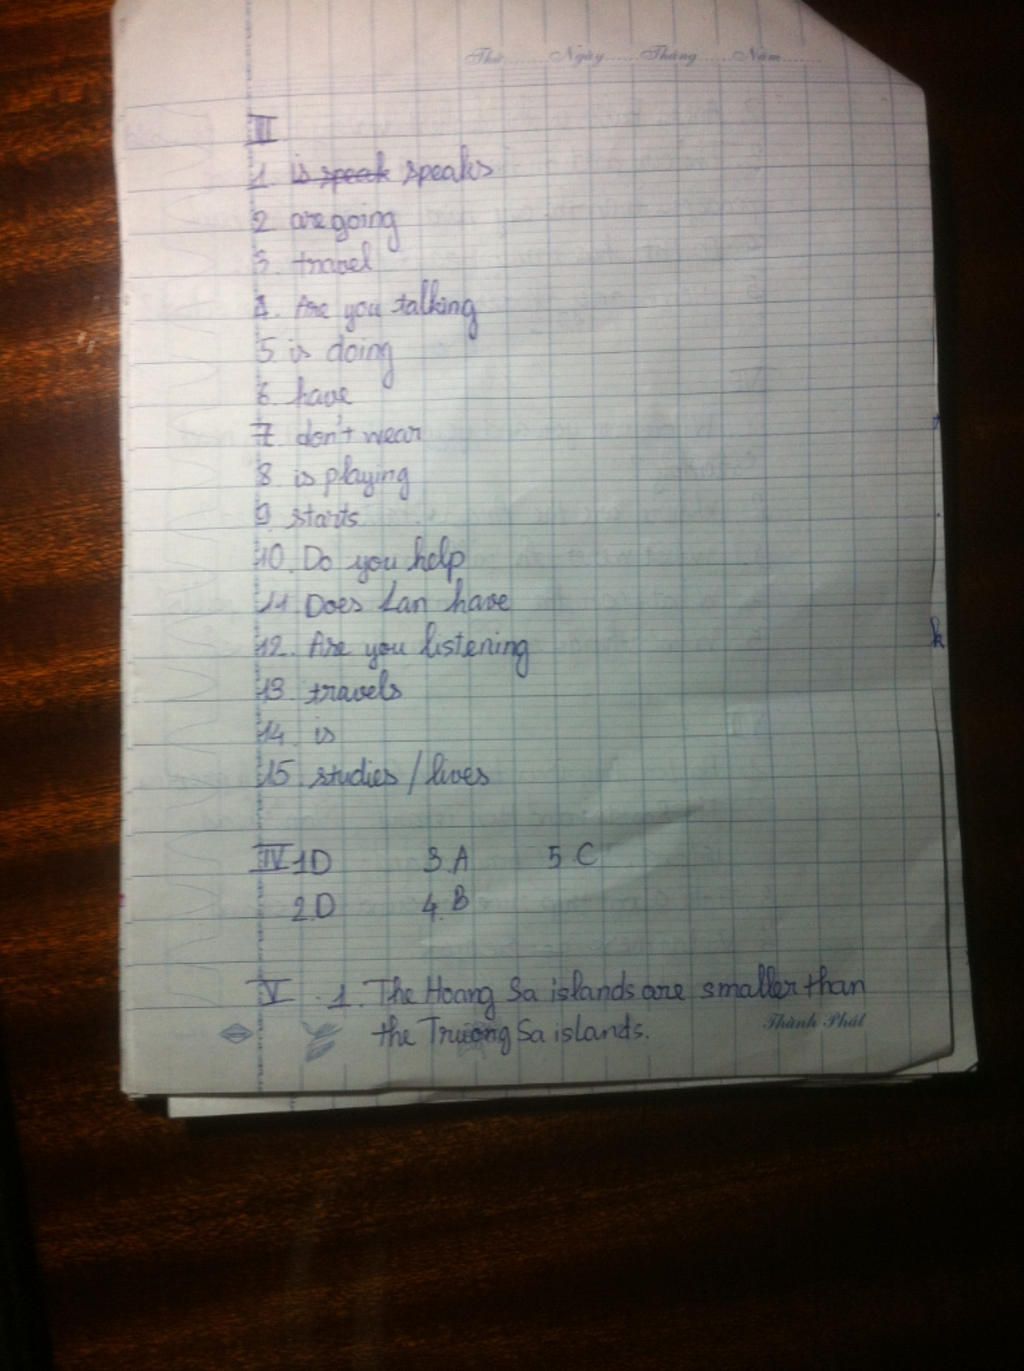 Thứ......Ngày......Tháng......Năm......
III
1 is speak speaks
2 are going
3. travel
4. Are you talking
5 is doing
6. have
7. don't wear
8 is playing
9 starts
10. Do you help
11 Does Lan have
12. Are you listening
13 travels
14. is
15 studies / lives
IV 1D 3.A 5 C
2.D 4.B
V 1. The Hoang Sa islands are smaller than
the Truong Sa islands.
Thành Phát
k